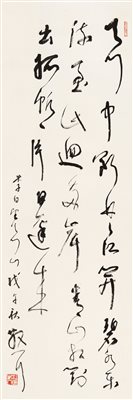 天门中断楚江開碧水东
流至此迴两岸青山相對
出孤帆一片日邊来
李白望天门山 戊午秋